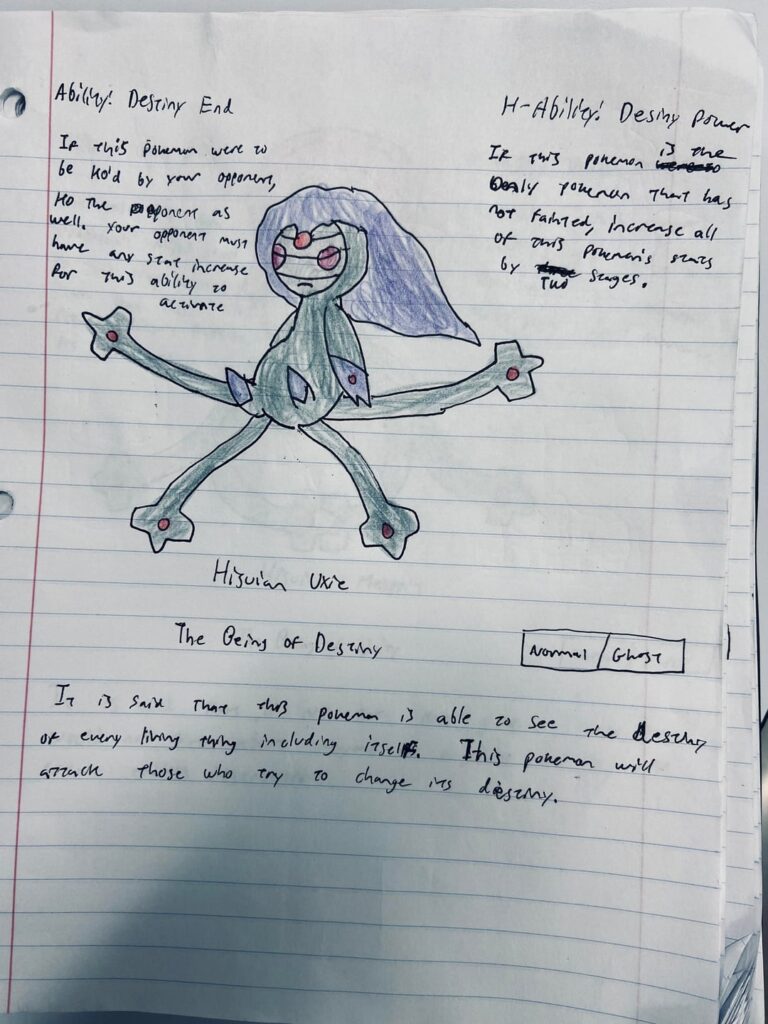 Ability: Destiny End
If this pokemon were to
be Ko'd by your opponent,
Ko the opponent as
well. Your opponent must
have any stat increase
for this ability to
activate
H-Ability: Desiny Power
If this pokemon is the
only pokemon that has
not fainted, increase all
of this pokemon's stats
by Two stages.
Hisuian Uxie
The Being of Destiny
Normal / Ghost
It is said that this pokemon is able to see the destiny
of every living thing including itself. This pokemon will
attack those who try to change its destiny.